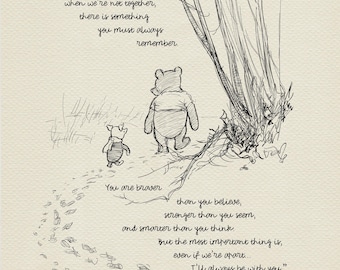 when we're not together,
there is something
you must always
remember.
You are braver
than you believe,
stronger than you seem,
and smarter than you think.
But the most important thing is,
even if we're apart...
I'll always be with you."